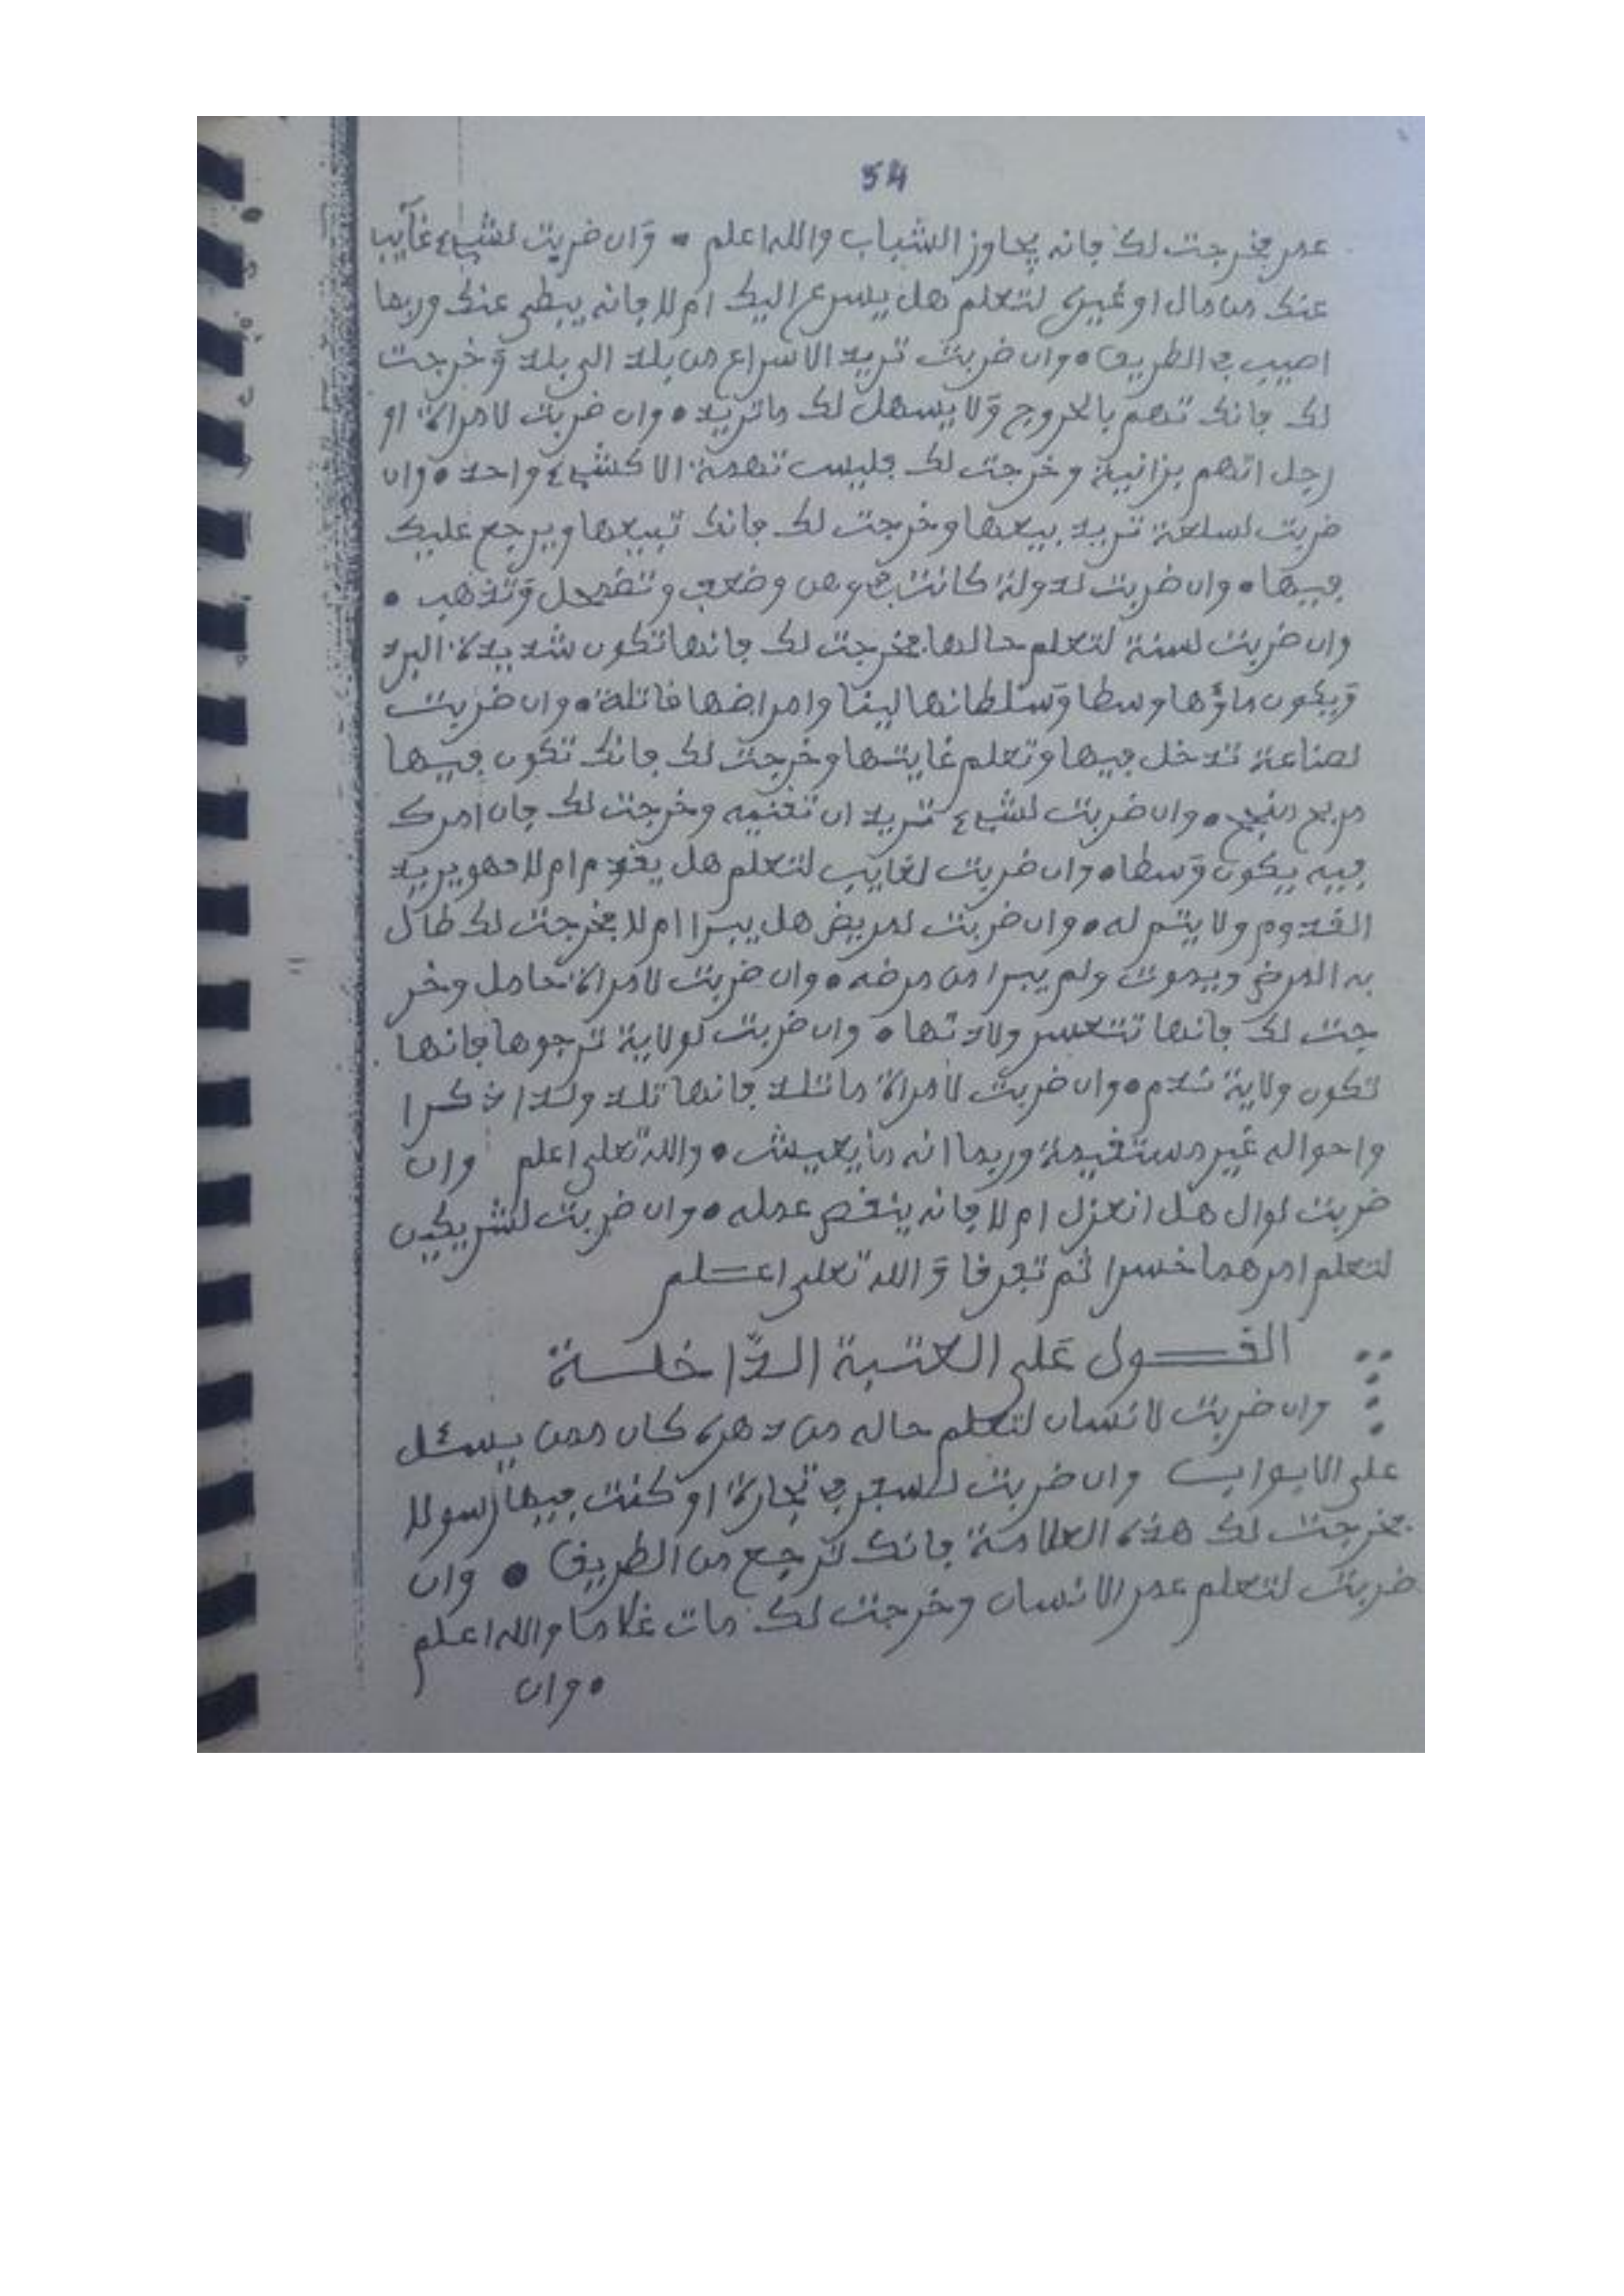 54
عمر فخرجت لك فانه يجاوز الشباب والله اعلم • وان ضربت لشيء غآيب
عنك من مال او غيره لتعلم هل يسرع اليك ام لا فانه يبطي عنك وربما
اصيب في الطريق • وان ضربت تريد الاسراع من بلد الى بلد وخرجت
لك فانك تهم بالخروج ولا يسهل لك ما تريد • وان ضربت لامراة او
رجل اتهم بزانية وخرجت لك فليست تهمة الا كشيء واحد • وان
ضربت لسلعة تريد بيعها وخرجت لك فانك تبيعها ويرجع عليك
فيها • وان ضربت لدولة كانت في وهن وضعف وتضمحل وتذهب •
وان ضربت لسنة لتعلم حالها فخرجت لك فانها تكون شديدة البرد
ويكون ماؤها وسطا وسلطانها لينا وامراضها قاتلة • وان ضربت
لصناعة تدخل فيها وتعلم غايتها وخرجت لك فانك تكون فيها
مربح منجح • وان ضربت لشيء تريد ان تقنيه وخرجت لك فان امرك
فيه يكون وسطا • وان ضربت لغايب لتعلم هل يقدم ام لا فهو يريد
القدوم ولا يتم له • وان ضربت لمريض هل يبرا ام لا فخرجت لك طال
به المرض ويموت ولم يبرا من مرضه • وان ضربت لامراة حامل وخر
جت لك فانها تتعسر ولادتها • وان ضربت لولاية ترجوها فانها
تكون ولاية ندم • وان ضربت لامراة ما تلد فانها تلد ولدا ذكرا
واحواله غير مستقيمة وربما انه ما يعيش • والله تعلى اعلم وان
ضربت لوال هل انعزل ام لا فانه ينقص عمله • وان ضربت لشريكين
لتعلم امرهما خسرا ثم تفرقا والله تعلى اعلم
القول على العتبة الداخلة
وان ضربت لانسان لتعلم حاله من دهره كان ممن يسئل
على الابواب وان ضربت لسفر في تجارة او كنت فيها رسولا
فخرجت لك هذه العلامة فانك ترجع من الطريق • وان
ضربت لتعلم عمر الانسان وخرجت لك مات غلاما والله اعلم
• وان